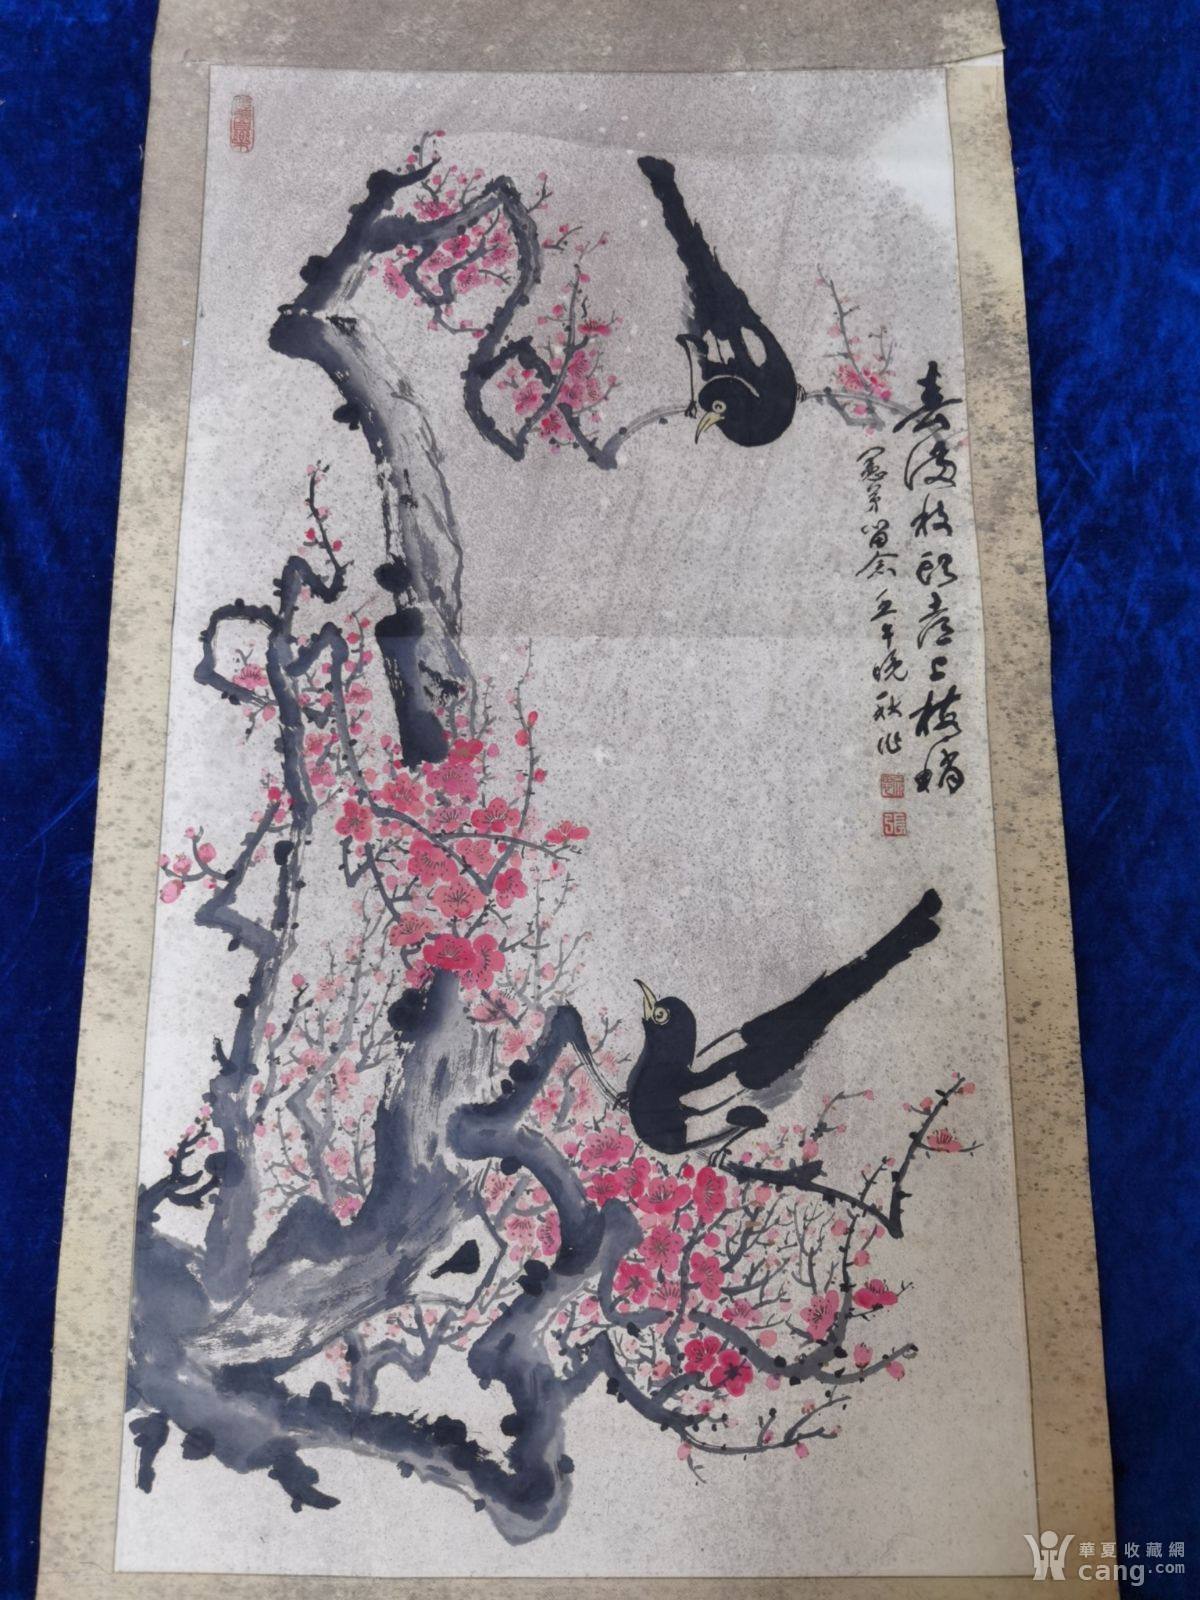 春满枝头喜上梅梢
愚弟留念 午晚秋作
張
華夏收藏網
cang.com